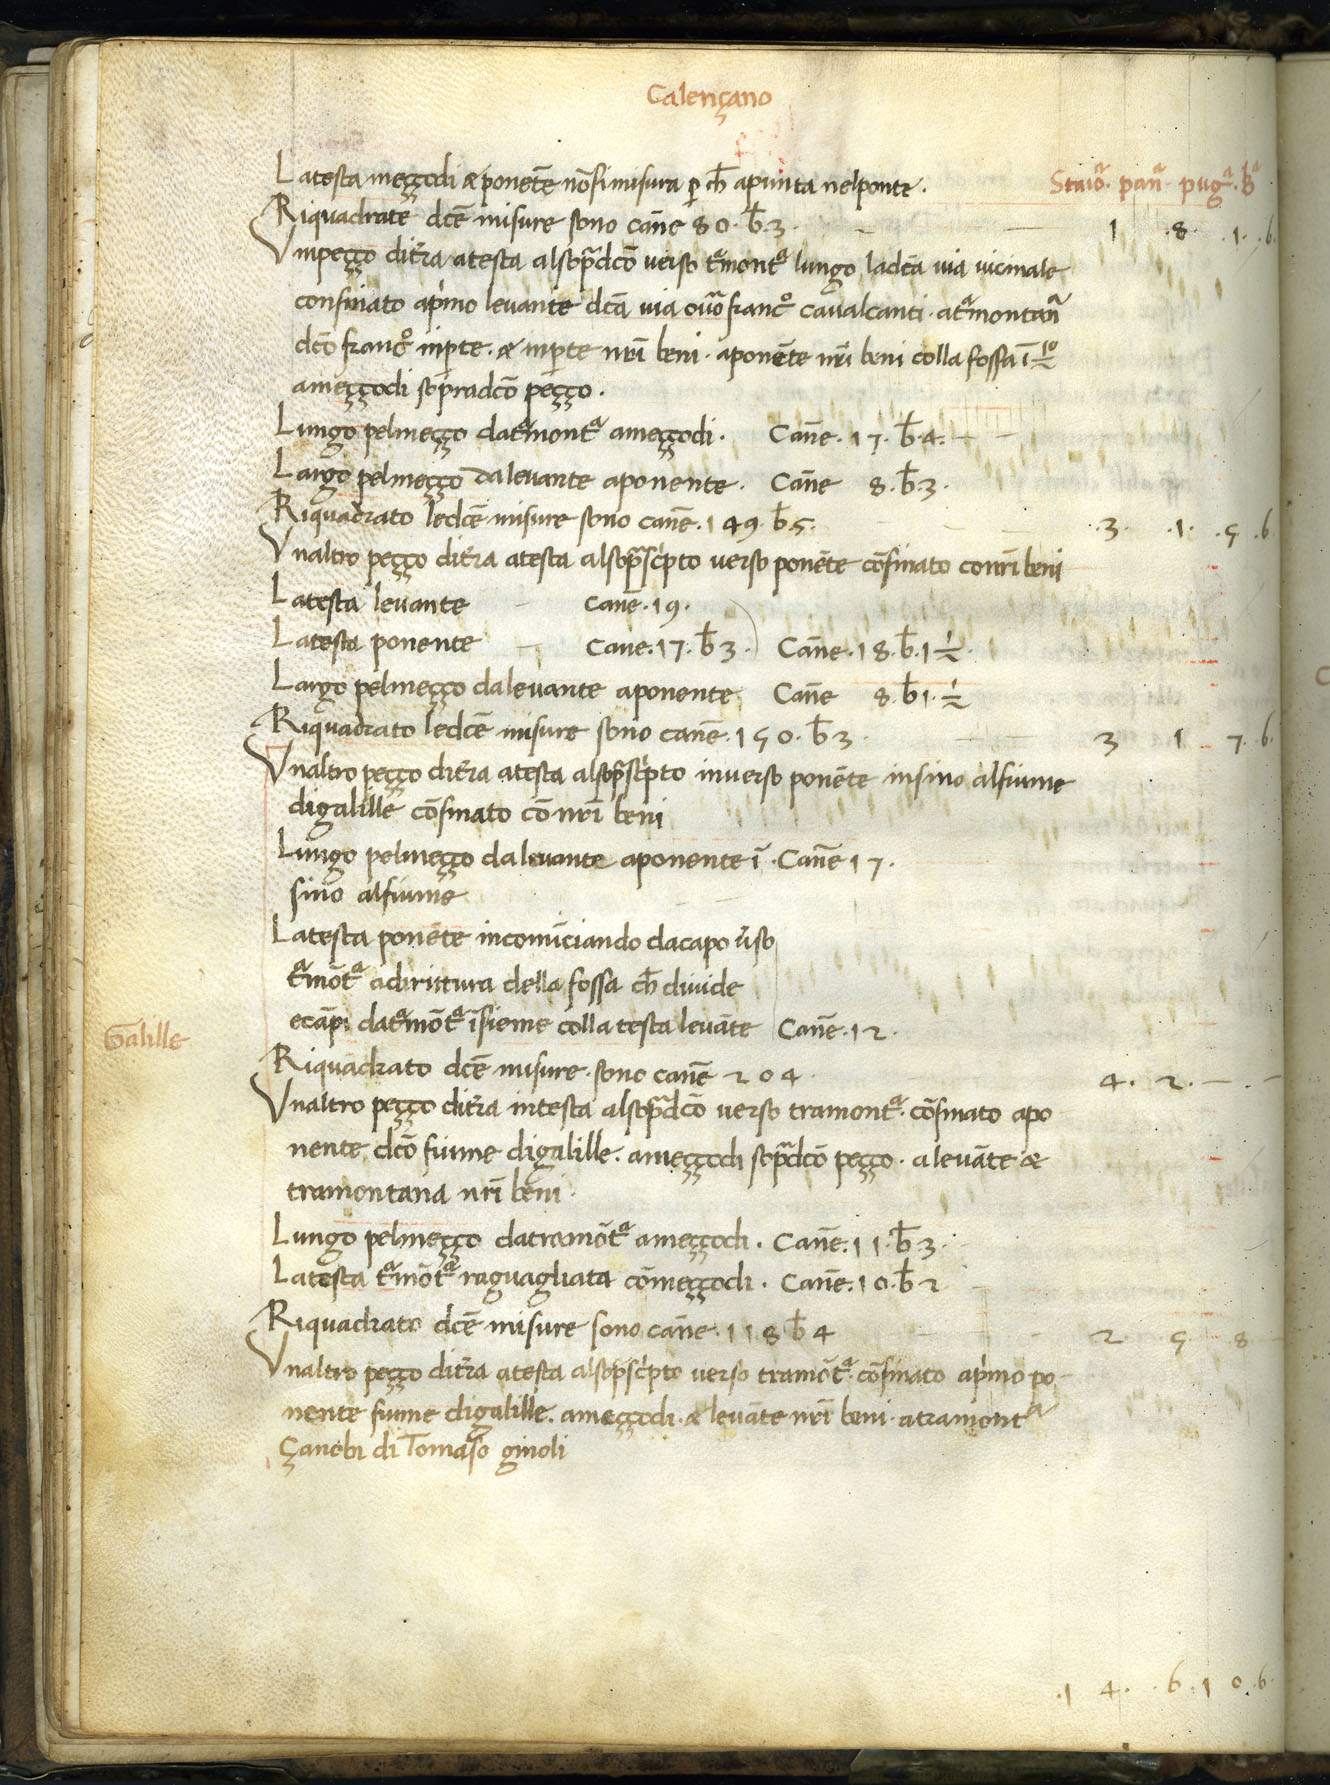 Calençano
Staioª· panª· pugª· bª
Latesta meççodi & ponētē nōsimisura p ch̄ apunta nelponte.
Riquadrate dcē misure sono cañe 80· b̄·3· 1 ·8· ·1· ·6·
Vnpeçço dit̄ra atesta alsop̄adcō verso tᵃmontᵃ lungo ladcā via vicinale
confinato ap̄imo levante dcā via ovᵒ francᵒ cavalcanti· atᵃmontanᵃ
dcō francᵒ inp̄te· & inp̄te nr̄i beni· aponēte nr̄i beni colla fossa ī
ameççodi sop̄radcō peçço·
Lungo pelmeçço datᵃmontᵃ ameççodi· Cañe· 17· b̄·4·
Largo pelmeçço dalevante aponente· Cañe 8· b̄·3·
Riquadrato ledcē misure sono cañe· 149· b̄·5· ·3· ·1· ·5 ·6·
Vnaltro peçço dit̄ra atesta alsop̄asc̄ipto verso ponēte cōfinato conr̄i beni
Latesta levante cañe·19·
Latesta ponente cane·17· b̄ 3· Cañe·18· b̄·1 ½·
Largo pelmeçço dalevante aponente Cañe 8· b̄1· ½
Riquadrato ledcē misure sono cañe·150· b̄3· 3 1 7· 6·
Vnaltro peçço dit̄ra atesta alsop̄asc̄ipto inverso ponēte insino alfiume
digalille cōfinato cō nr̄i beni
Lungo pelmeçço dalevante aponente ī· Cañe 17·
sino alfiume
Latesta ponēte incomīciando dacapo v̄so
tᵃmōtᵃ adirittura della fossa ch̄ divide
ecāpi datᵃmōtᵃ īsieme colla testa levāte Cañe·12·
Galille
Riquadrato dcē misure· sono cañe 204· 4· 2·
Vnaltro peçço dit̄ra intesta alsop̄adcō verso tramontᵃ· cōfinato apo
nente dcō fiume digalille· ameççodi sop̄adcō peçço· alevāte &
tramontana nr̄i beni·
Lungo pelmeçço datramōtᵃ ameççodi· Cañe·11· b̄ 3·
Latesta tᵃmōtᵃ raguagliata cōmeççodi· Cañe·10· b̄ 2
Riquadrato dcē misure sono cañe·118 b̄ 4 2 5 8
Vnaltro peçço dit̄ra atesta alsop̄asc̄ipto verso tramōtᵃ· cōfinato ap̄imo po-
nente fiume digalille· ameççodi· & levāte nr̄i beni· atramontᵃ
Çanobi di Tomaso ginoli
·1 4· ·6·1 0·6·